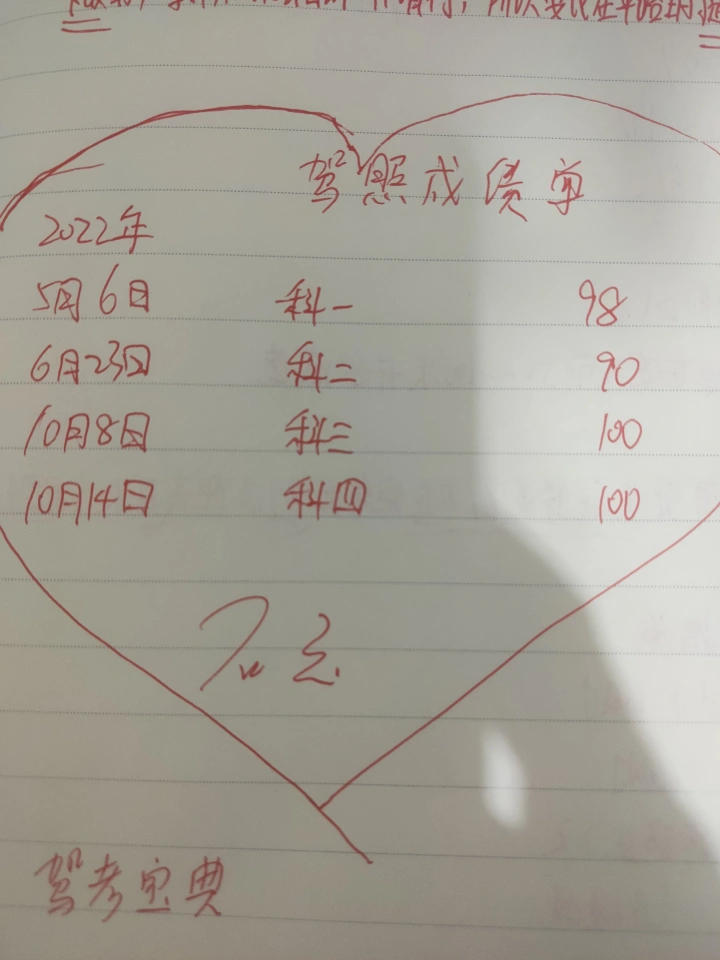 驾照成绩单
2022年
5月6日 科一 98
6月23日 科二 90
10月8日 科三 100
10月14日 科四 100
驾考宝典